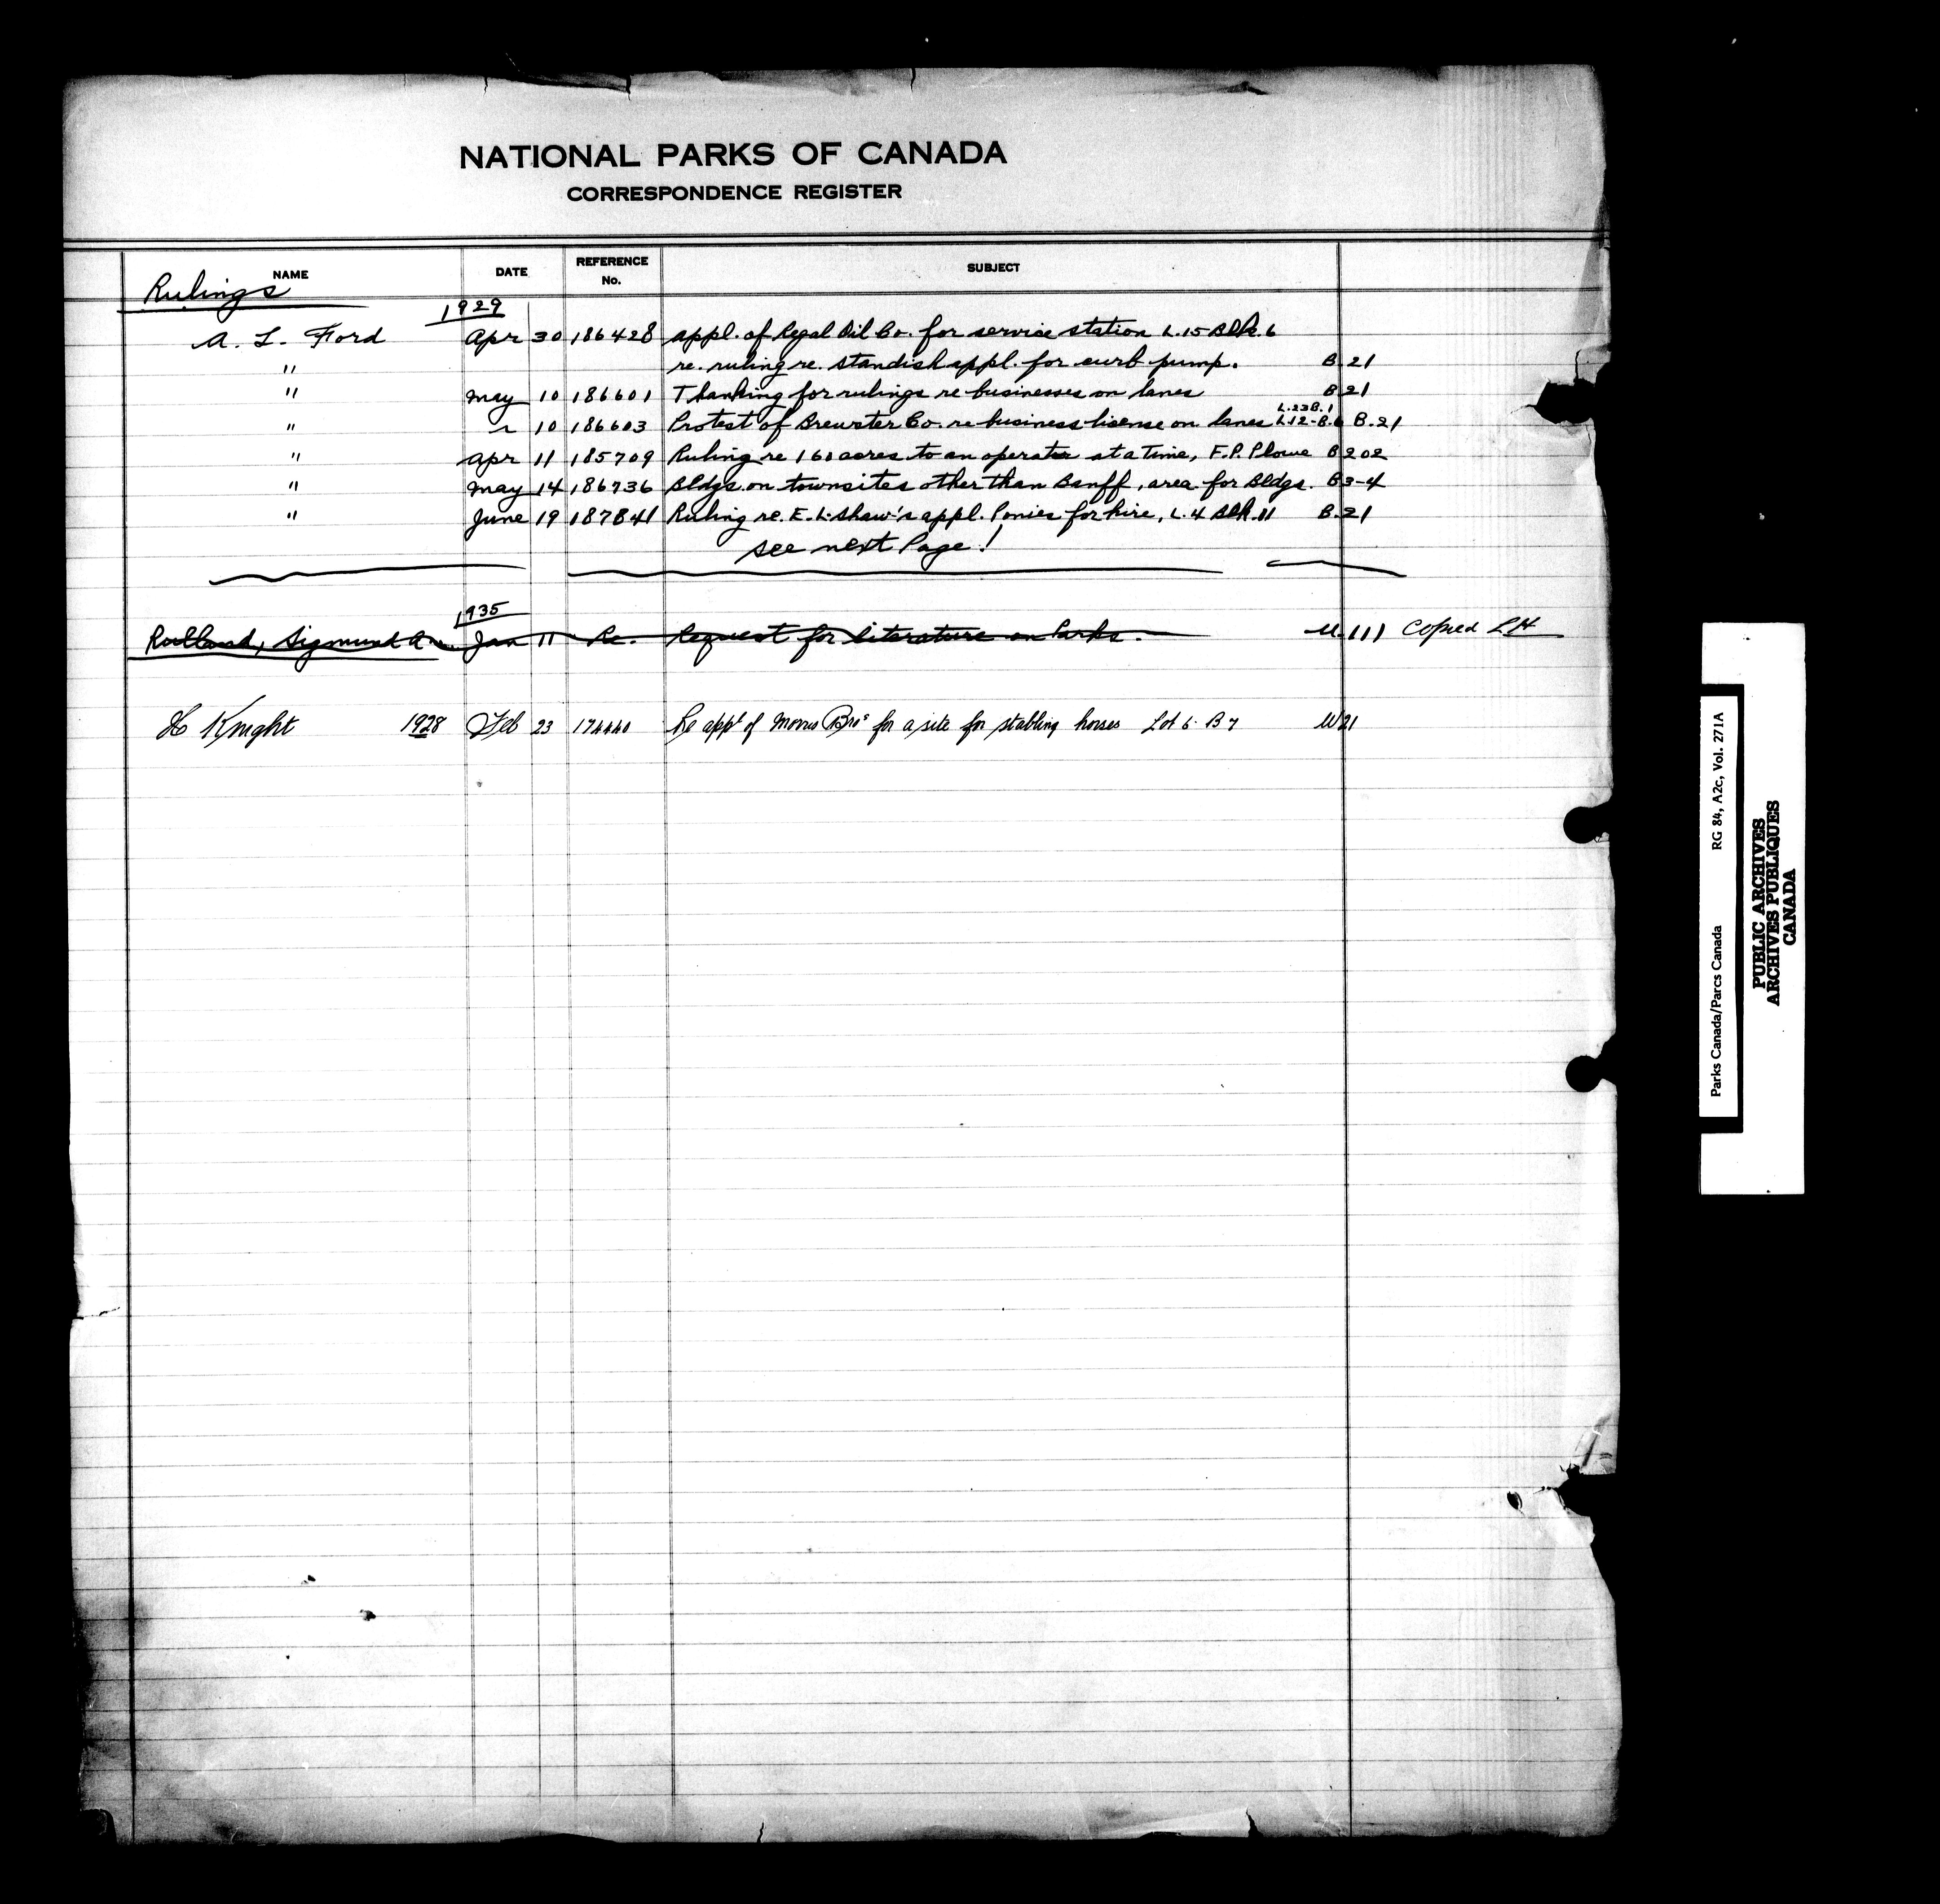 NATIONAL PARKS OF CANADA
CORRESPONDENCE REGISTER
NAME DATE REFERENCE No. SUBJECT
Rulings
1929
A. L. Ford Apr 30 186428 appl. of Regal Oil Co. for service station L.15 Blk. 6
" re. ruling re. standish appl. for curb pump. B.21
" May 10 186601 Thanking for rulings re businesses on lanes B 21
" " 10 186603 Protest of Brewster Co. re business license on lanes L.23 B.1 L.12-B.6 B.21
" Apr 11 185709 Ruling re 160 acres to an operator at a Time, F.P. Plowe B 202
" May 14 186736 Bldgs. on townsites other than Banff, area for Bldgs. B3-4
" June 19 187841 Ruling re. E. L. Shaw's appl. Ponies for hire, L. 4 Blk. 11 B.21
see next Page!
1935
Sigmund Jan 11 Re. Request for literature on Parks. U.111 Copied LH
H Knight 1928 Feb 23 174440 Re appl of Morris Bros for a site for stabling horses Lot 6 B 7 W21
Parks Canada/Parcs Canada RG 84, A2c, Vol. 271A
PUBLIC ARCHIVES
ARCHIVES PUBLIQUES
CANADA